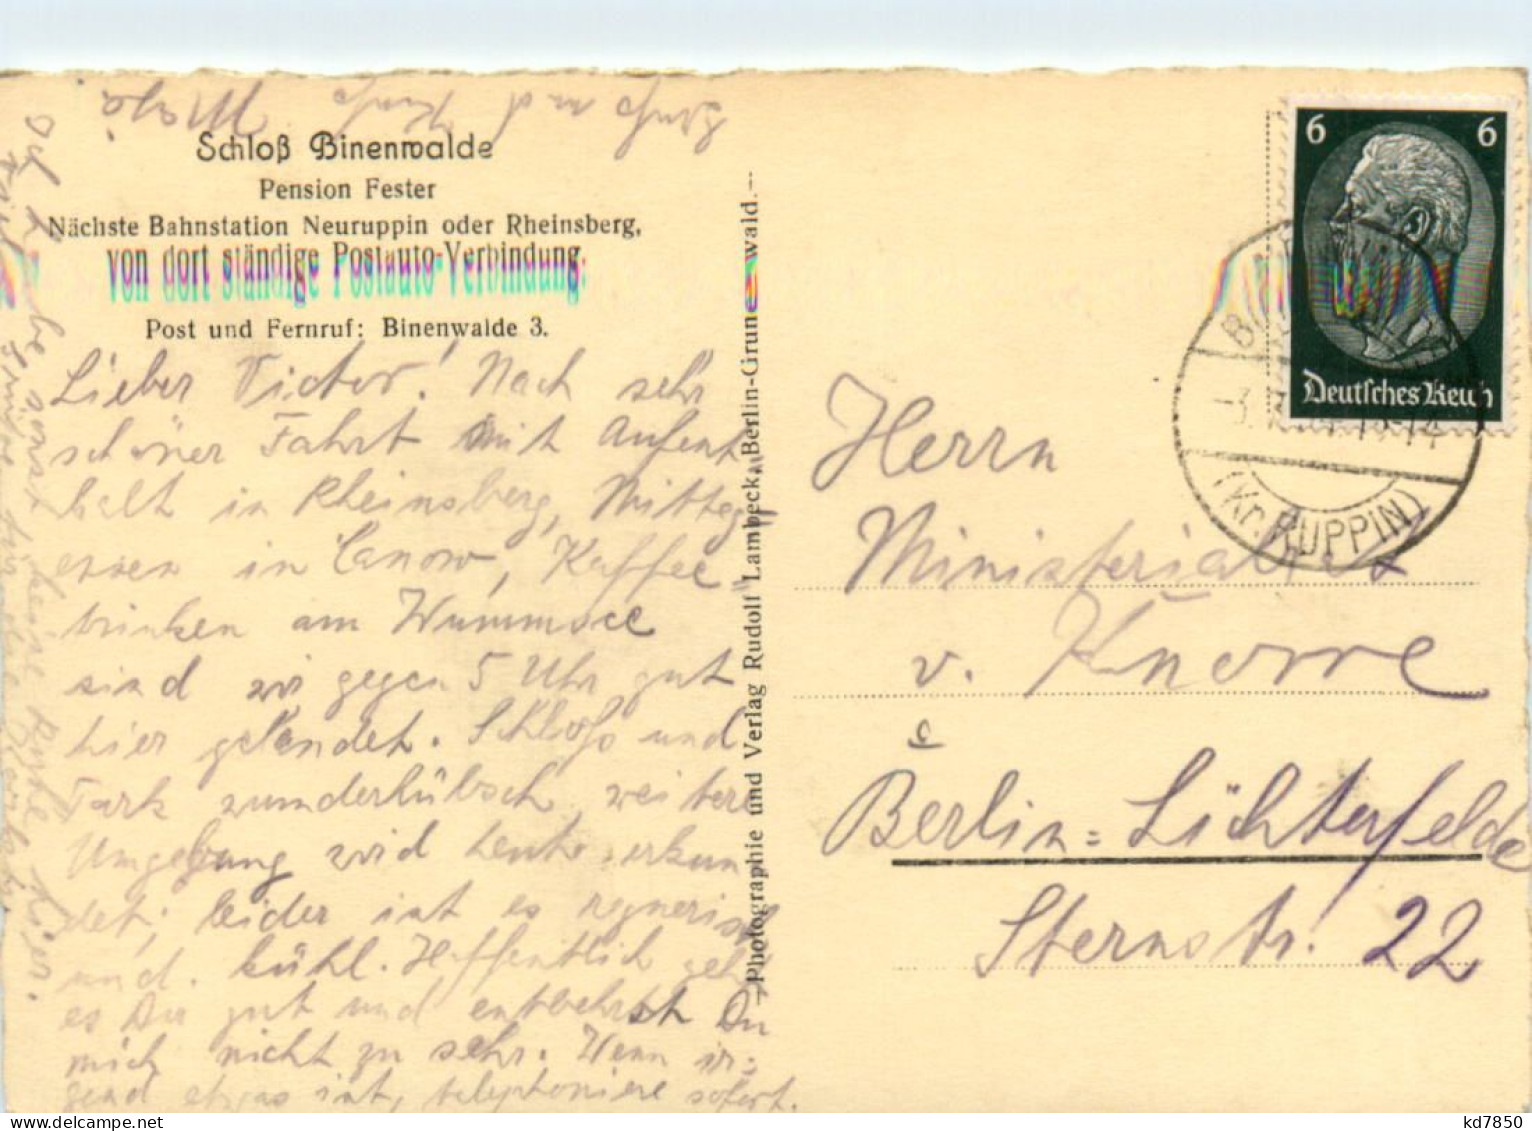 Schloß Binenwalde
Pension Fester
Nächste Bahnstation Neuruppin oder Rheinsberg,
von dort ständige Postauto-Verbindung.
Post und Fernruf: Binenwalde 3.
Lieber Victor! Nach sehr
schöner Fahrt mit Aufent
halt in Rheinsberg, Mittag
essen in Canow, Kaffee
trinken am Wummsee
sind wir gegen 5 Uhr gut
hier gelandet. Schloß und
Park wunderhübsch, weitere
Umgebung wird heute erkun
det; leider ist es regnerisch
und kühl. Hoffentlich geht
es Du gut und entbehrst Du
mich nicht zu sehr. Wenn ir=
gend etwas ist, telephoniere sofort.
Gruß und Kuß
Photographie und Verlag Rudolf Lambeck, Berlin-Grunewald.
6 6
Deutsches Reich
(Kr. RUPPIN)
Herrn
Ministerialrat
v. Knorre
Berlin=Lichterfelde
Sternstr. 22
kd7850